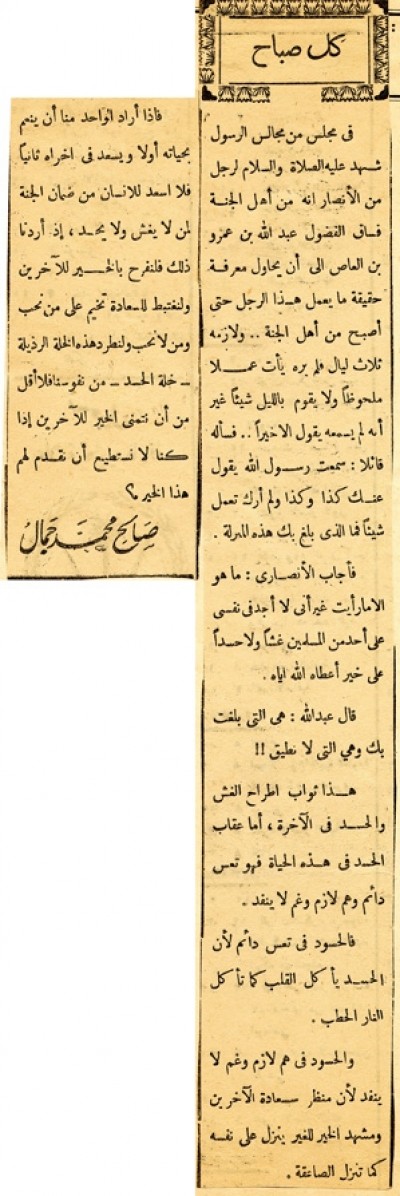 كل صباح
فى مجلس من مجالس الرسول
شهد عليه الصلاة والسلام لرجل
من الأنصار انه من أهل الجنة
فساق الفضول عبد الله بن عمرو
بن العاص الى أن يحاول معرفة
حقيقة ما يعمل هذا الرجل حتى
أصبح من أهل الجنة .. ولازمه
ثلاث ليال فلم يره يأت عملا
ملحوظاً ولا يقوم بالليل شيئاً غير
أنه لم يسمعه يقول الا خيراً .. فسأله
قائلا : سمعت رسول الله يقول
عنك كذا وكذا ولم أرك تعمل
شيئاً فما الذى بلغ بك هذه المنزلة .
فأجاب الأنصارى : ما هو
الا مارأيت غير أنى لا أجد فى نفسى
على أحد من المسلمين غشاً ولا حسداً
على خير أعطاه الله اياه .
قال عبدالله : هى التى بلغت
بك وهي التى لا نطيق !!
هذا ثواب اطراح الغش
والحسد فى الآخرة ، أما عقاب
الحسد فى هذه الحياة فهو تعس
دائم وهم لازم وغم لا ينفد .
فالحسود فى تعس دائم لأن
الحسد يأكل القلب كما تأكل
النار الحطب .
والحسود فى هم لازم وغم لا
ينفد لأن منظر سعادة الآخرين
ومشهد الخير للغير ينزل على نفسه
كما تنزل الصاعقة .
فاذا أراد الواحد منا أن ينعم
بحياته أولا ويسعد فى اخراه ثانياً
فلا اسعد للانسان من ضمان الجنة
لمن لا يغش ولا يحسد ، إذ أردنا
ذلك فلنفرح بالخير للآخرين
ولنغتبط للسعادة تخيم على من نحب
ومن لا نحب ولنطرد هذه الخلة الرذيلة
ـ خلة الحسد ـ من نفوسنا فلا أقل
من أن نتمنى الخير للآخرين إذا
كنا لا نستطيع أن نقدم لهم
هذا الخير ؟
صالح محمد جمال